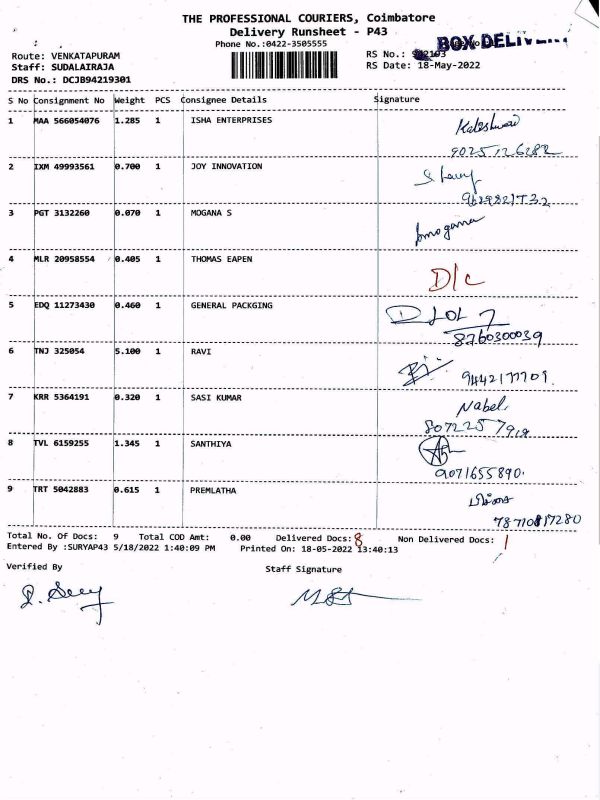 THE PROFESSIONAL COURIERS, Coimbatore
Delivery Runsheet - P43
Phone No.:0422-3505555
BOX DELIVERY
Route: VENKATAPURAM
RS No.: 942193
Staff: SUDALAIRAJA
RS Date: 18-May-2022
DRS No.: DCJB94219301
S No Consignment No Weight PCS Consignee Details Signature
1 MAA 566054076 1.285 1 ISHA ENTERPRISES
9025126282
2 IXM 49993561 0.700 1 JOY INNOVATION
9629821732
3 PGT 3132260 0.070 1 MOGANA S
mogana
4 MLR 20958554 0.405 1 THOMAS EAPEN
D/c
5 EDQ 11273430 0.460 1 GENERAL PACKGING
8760300039
6 TNJ 325054 5.100 1 RAVI
9442177709.
7 KRR 5364191 0.320 1 SASI KUMAR Nabel.
8072257919
8 TVL 6159255 1.345 1 SANTHIYA
9071655890.
9 TRT 5042883 0.615 1 PREMLATHA
78710817280
Total No. Of Docs: 9 Total COD Amt: 0.00 Delivered Docs: 8 Non Delivered Docs: 1
Entered By :SURYAP43 5/18/2022 1:40:09 PM Printed On: 18-05-2022 13:40:13
Verified By Staff Signature